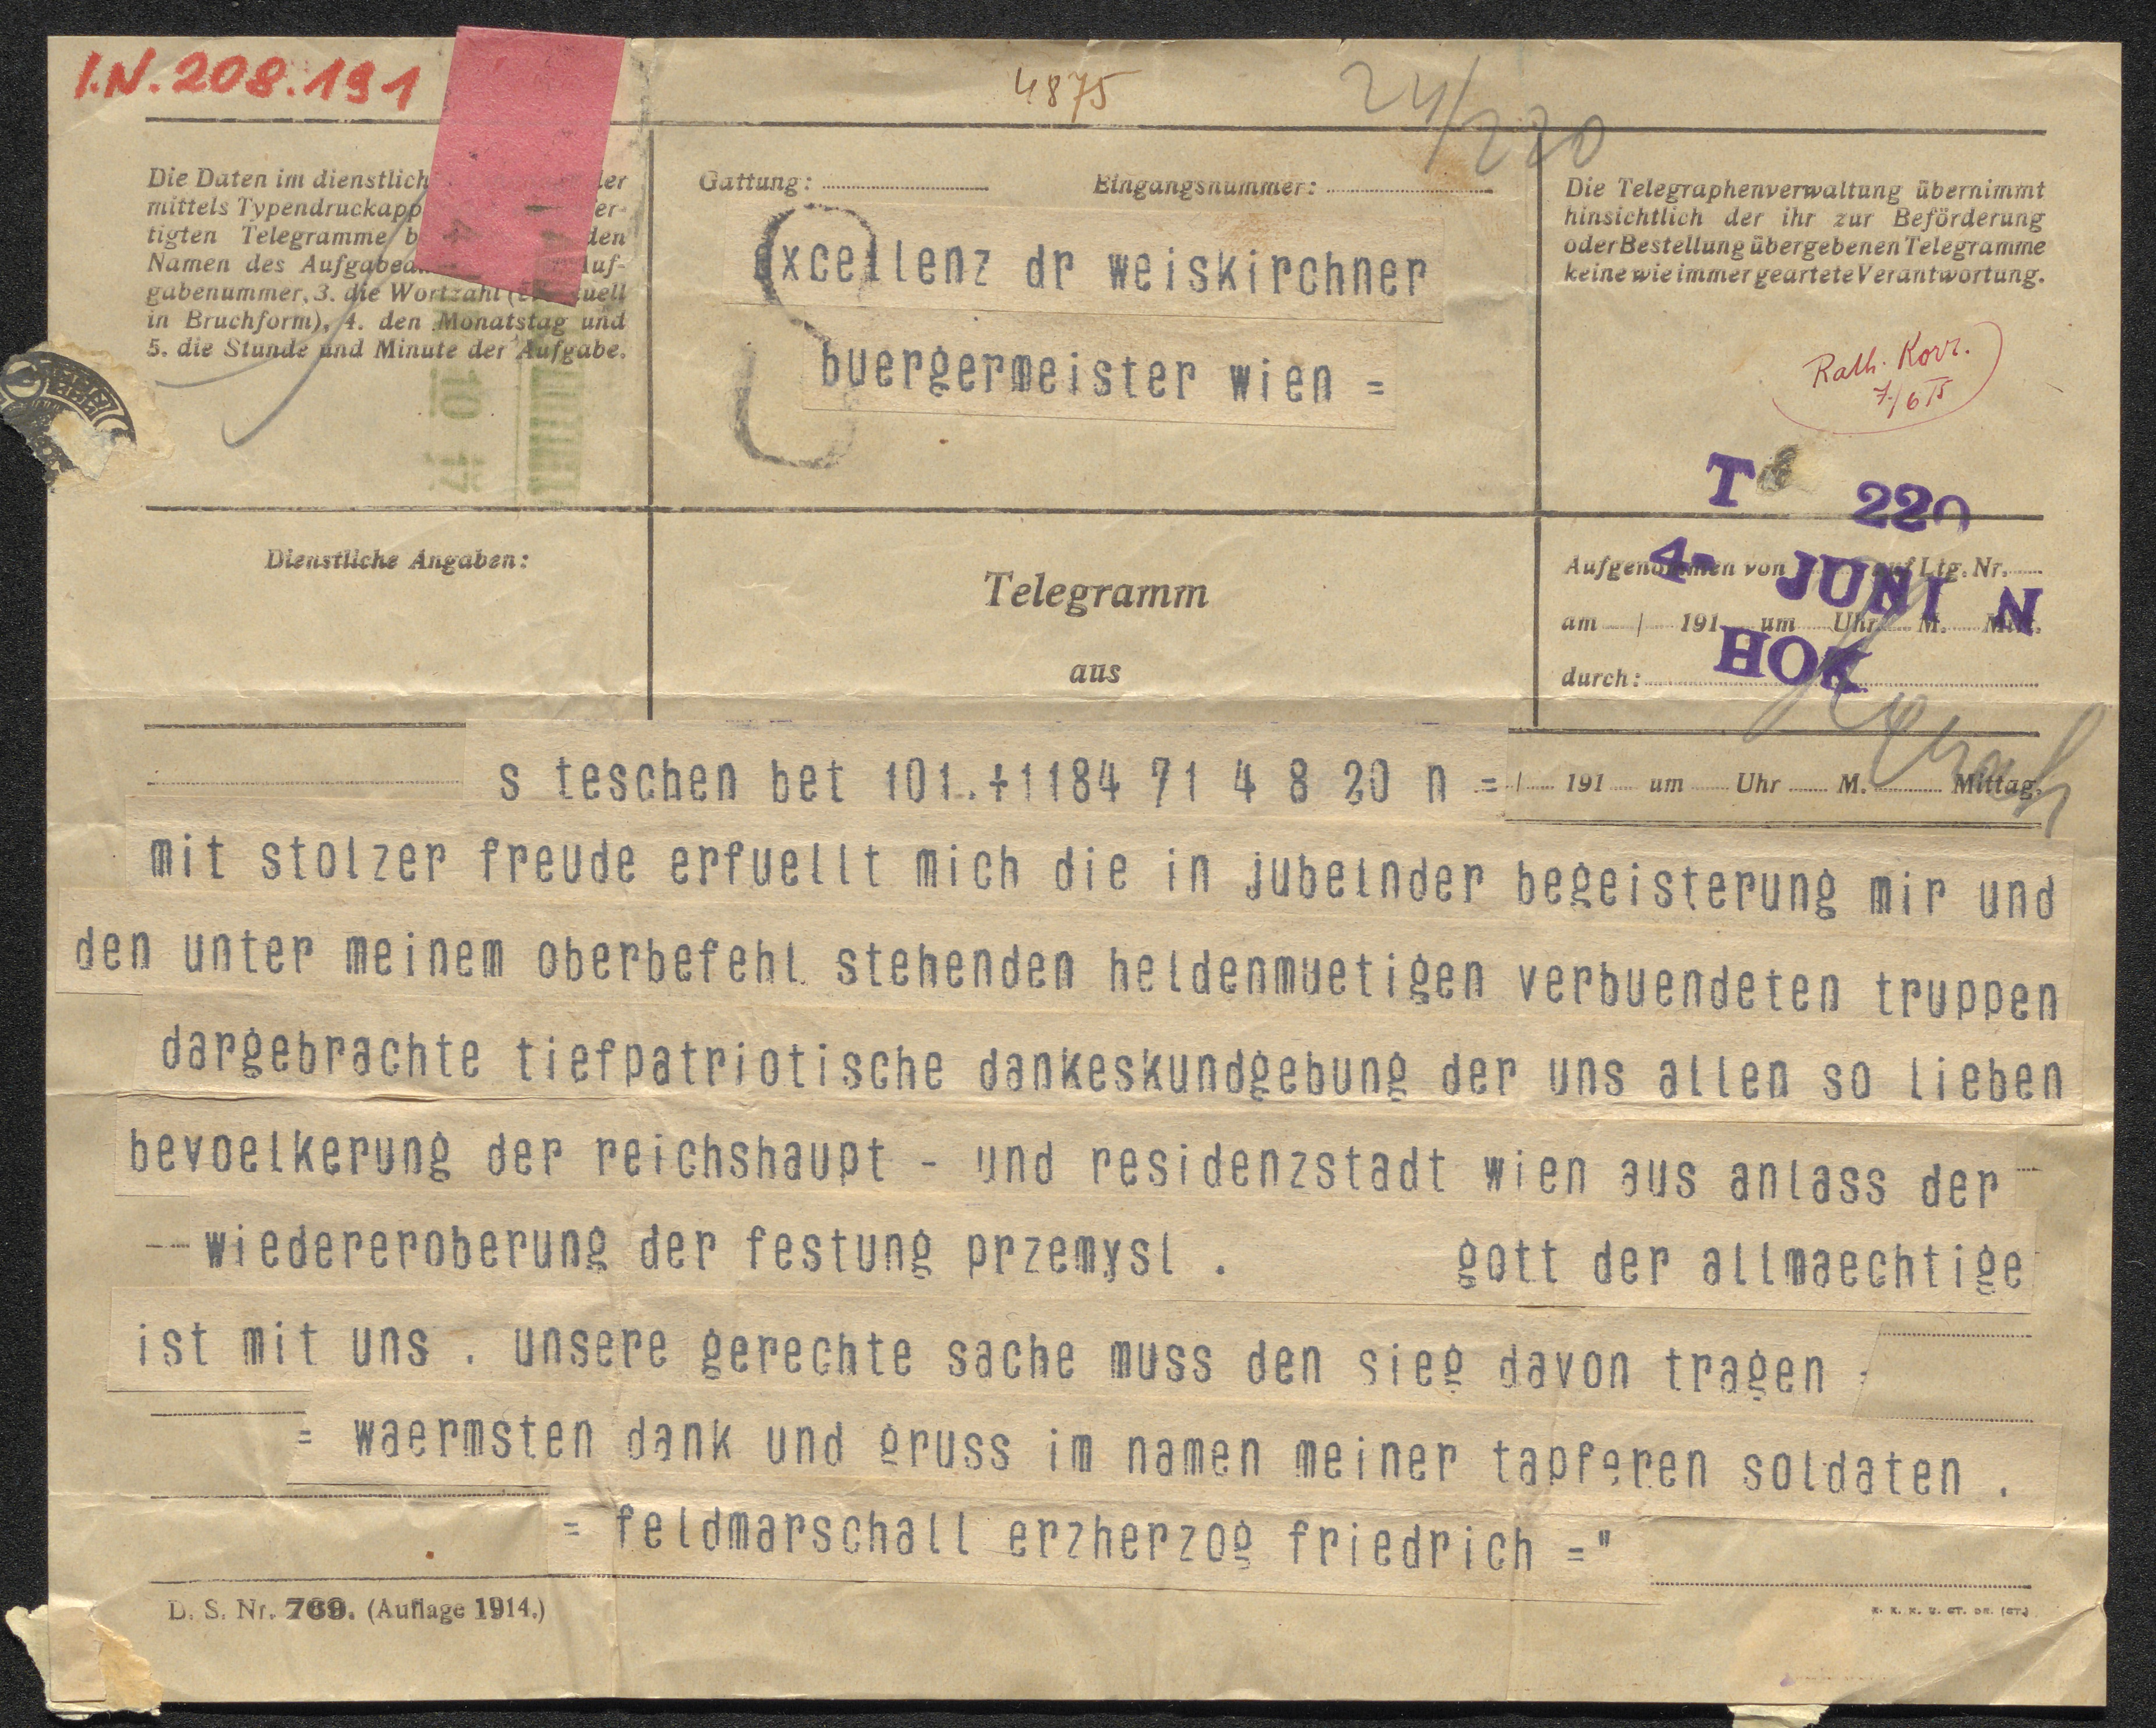 I.N. 208.191
4875
24/220
Die Daten im dienstlich ler
mittels Typendruckapp er-
tigten Telegramme b den
Namen des Aufgabea uf-
gabenummer, 3. die Wortzahl ( uell
in Bruchform), 4. den Monatstag und
5. die Stunde und Minute der Aufgabe.
Gattung: Eingangsnummer:
excellenz dr weiskirchner
buergermeister wien =
Die Telegraphenverwaltung übernimmt
hinsichtlich der ihr zur Beförderung
oder Bestellung übergebenen Telegramme
keine wie immer geartete Verantwortung.
Rath. Korr.
7/6 15
T 220
4- JUNI N
HOK
Dienstliche Angaben:
Telegramm
aus
Aufgenommen von auf Ltg. Nr.
am / 191 um Uhr M. Mitt.
durch:
s teschen bet 101.+1184 71 4 8 20 n = / 191 um Uhr M. Mittag.
mit stolzer freude erfuellt mich die in jubelnder begeisterung mir und
den unter meinem oberbefehl stehenden heldenmuetigen verbuendeten truppen
dargebrachte tiefpatriotische dankeskundgebung der uns allen so lieben
bevoelkerung der reichshaupt - und residenzstadt wien aus anlass der
wiedereroberung der festung przemysl . gott der allmaechtige
ist mit uns . unsere gerechte sache muss den sieg davon tragen
= waermsten dank und gruss im namen meiner tapferen soldaten .
= feldmarschall erzherzog friedrich ="
D. S. Nr. 769. (Auflage 1914.)